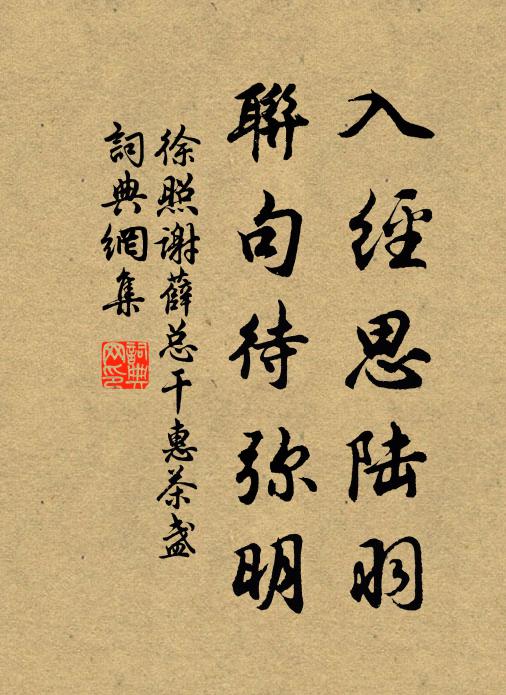 入經思陆羽
聯句待弥明
徐照谢薛总干惠茶盏
詞典網集
詞典网印